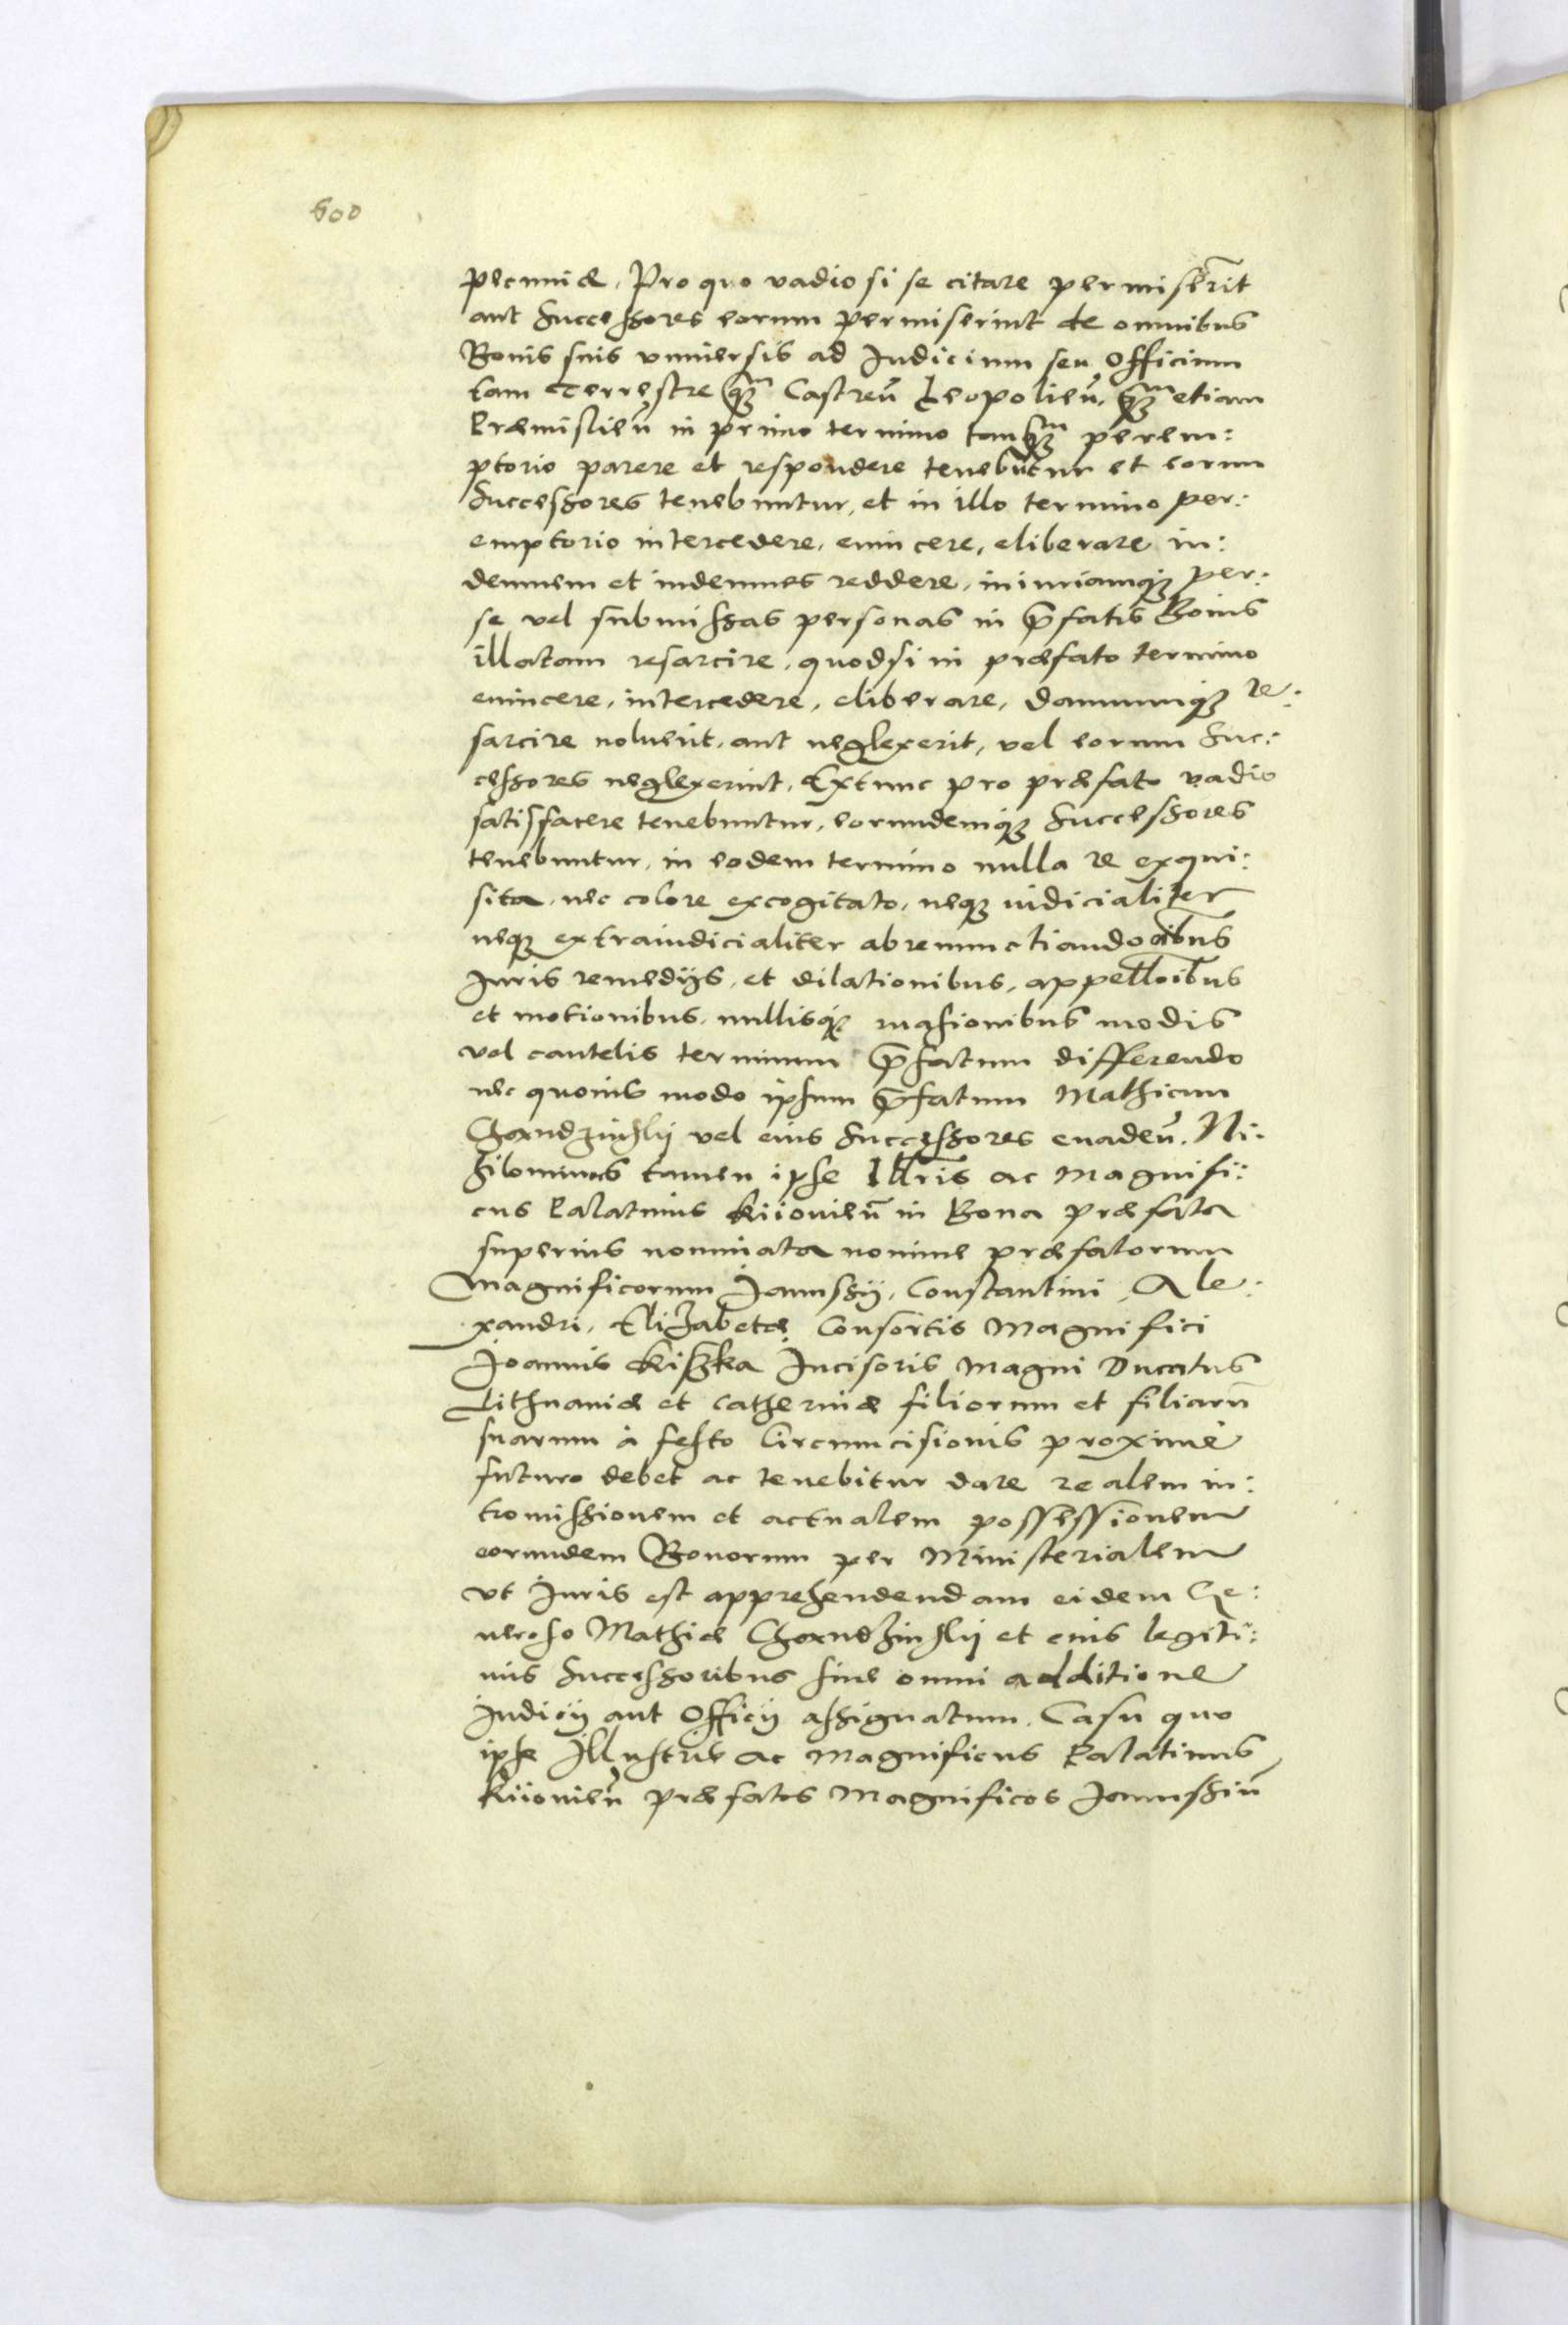 600
pecuniæ, Pro quo vadio si se citare permiserīt
aut Successores eorum permiserint de omnibus
Bonis suis vniuersis ad Iudicium seu Officium
tam Terrestre qȝm Castreñ Leopolieñ, qȝm etiam
Præmislieñ in primo termino tanqȝm perem:
ptorio parere et respondere tenebūtur et eorum
Successores tenebuntur, et in illo termino per:
emptorio intercedere, euincere, eliberare in:
demnem et indemnes reddere, iniuriamqȝ per:
se vel submissas personas in p̄fatis Bonis
illatam resarcire, quodsi in præfato termino
euincere, intercedere, eliberare, damnumqȝ re:
sarcire noluerit, aut neglexerit, vel eorum Suc:
cessores neglexerint, Extunc pro præfato vadio
satisfacere tenebuntur, eorundemqȝ Successores
tenebuntur, in eodem termino nulla re exqui:
sita, nec colore excogitato, neqȝ iudicialiter
neqȝ extraiudicialiter abrenunctiando oībus
Iuris remedijs, et dilationibus, appelloībus
et motionibus, nullisqȝ euasionibus modis
vel cautelis terminum p̄fatum differendo
nec quouis modo ipsum p̄fatum Mathiam
vel eius Successores euadeñ. Ni:
hilominus tamen ipse Illris ac Magnifi:
cus Palatinus Kiiouieñ in Bona præfata
superius nominata nomine præfatorum
Magnificorum Janussij, Constantini, Ale:
xandri, Elizabetæ Consortis Magnifici
Joannis Kiszka Incisoris Magni Ducatus
Lithuaniæ et Catherinæ filiorum et filiarū
suarum à festo Circumcisionis proximè
futuro debet ac tenebitur dare realem in:
tromissionem et actualem possessionem
eorundem Bonorum per Ministerialem
vt Iuris est apprehendendam eidem Ge:
neroso Mathiæ et eius legiti:
mis Successoribus sine omni additione
Iudicij aut Officij assignatum. Casu quo
ipse Illustris ac Magnificus Palatinus
Kiiouieñ præfatos Magnificos Janussiū